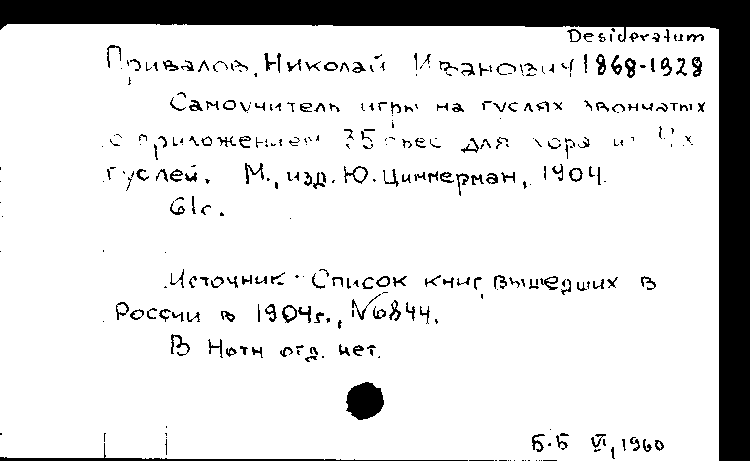 Desideratum
Привалов, Николай Иванович 1868-1928
Самоучитель игры на гуслях звончатых
с приложением 35 пьес для хора из 4х
гуслей. М., изд. Ю. Циммерман, 1904.
61с.
Источник: Список книг, вышедших в
России в 1904г., №6844.
В Нотн отд. нет.
Б-Б VI, 1960